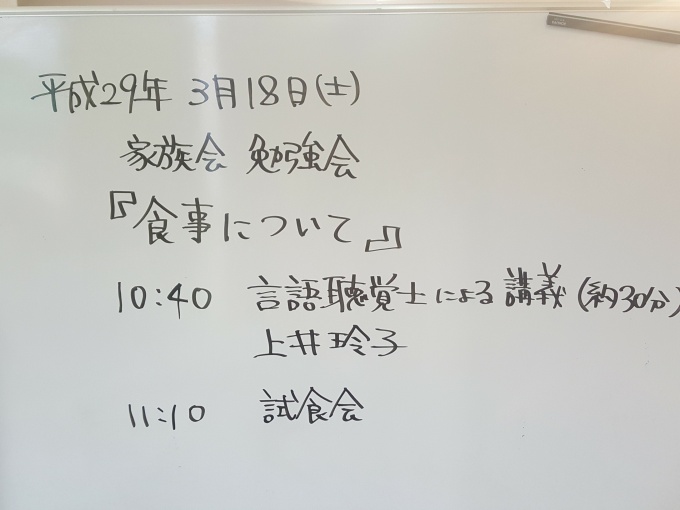 平成29年 3月18日(土)
家族会 勉強会
『食事について』
10:40 言語聴覚士による講義(約30分)
上井玲子
11:10 試食会